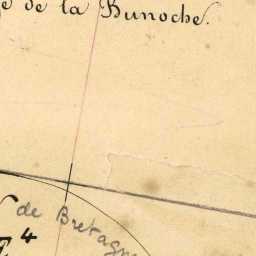 de la Bunoche.
de Bretagne
4